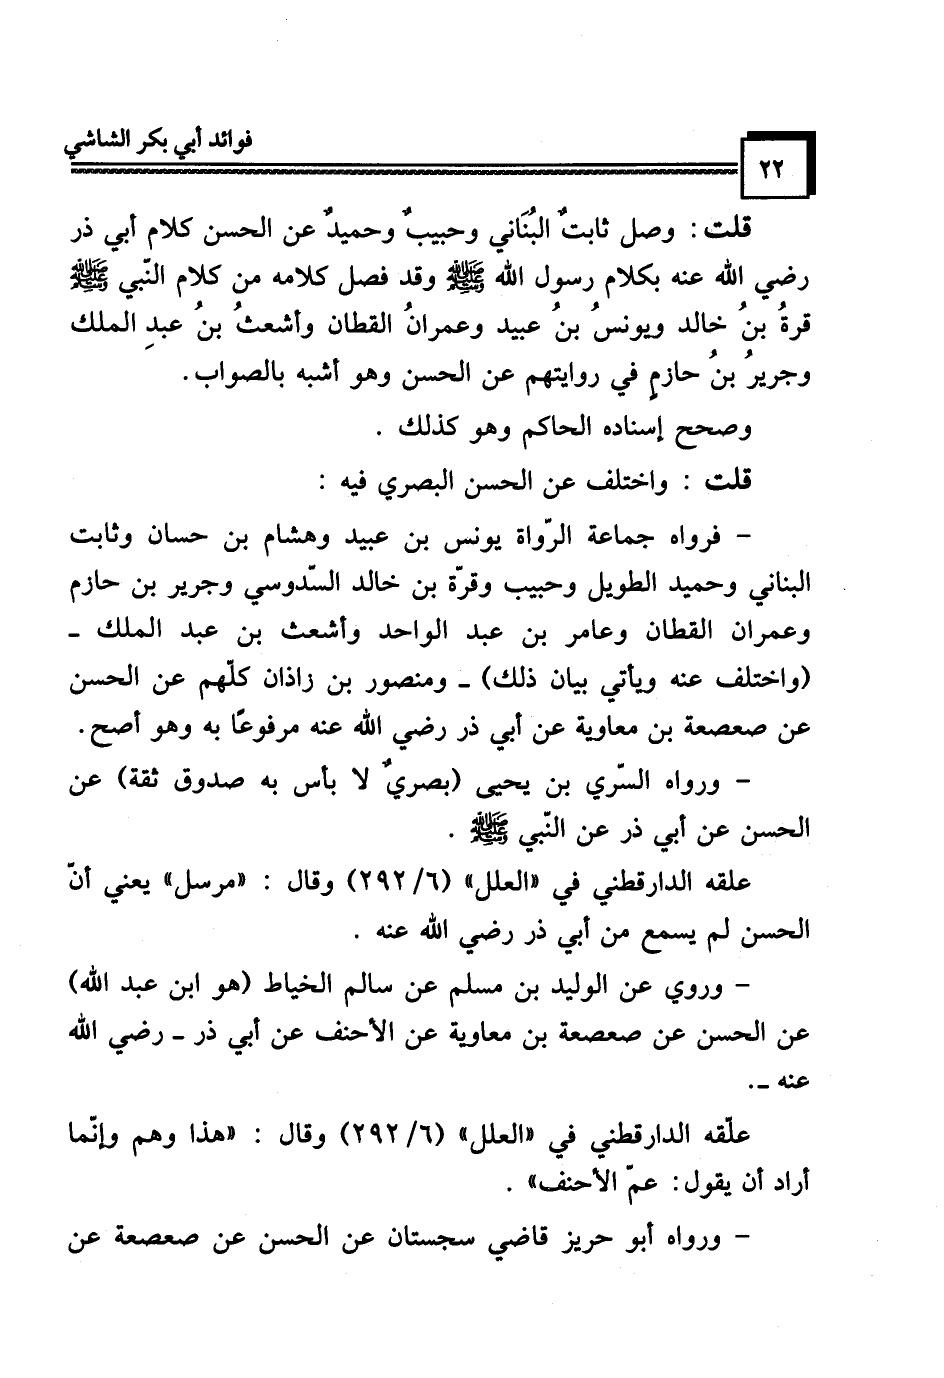 فوائد أبي بكر الشاشي
٢٢
قلت: وصل ثابتٌ البُنَاني وحبيبٌ وحميدٌ عن الحسن كلام أبي ذر
رضي الله عنه بكلام رسول الله ﷺ وقد فصل كلامه من كلام النّبي ﷺ
قرةُ بنُ خالد ويونسُ بنُ عبيد وعمرانُ القطان وأشعثُ بنُ عبدِ الملك
وجريرُ بنُ حازمٍ في روايتهم عن الحسن وهو أشبه بالصواب.
وصحح إسناده الحاكم وهو كذلك .
قلت : واختلف عن الحسن البصري فيه :
- فرواه جماعة الرّواة يونس بن عبيد وهشام بن حسان وثابت
البناني وحميد الطويل وحبيب وقرّة بن خالد السّدوسي وجرير بن حازم
وعمران القطان وعامر بن عبد الواحد وأشعث بن عبد الملك -
(واختلف عنه ويأتي بيان ذلك) - ومنصور بن زاذان كلّهم عن الحسن
عن صعصعة بن معاوية عن أبي ذر رضي الله عنه مرفوعًا به وهو أصح.
- ورواه السّري بن يحيى (بصريٌ لا بأس به صدوق ثقة) عن
الحسن عن أبي ذر عن النّبي ﷺ .
علقه الدارقطني في «العلل» (٢٩٢/٦) وقال : «مرسل» يعني أنّ
الحسن لم يسمع من أبي ذر رضي الله عنه .
- وروي عن الوليد بن مسلم عن سالم الخياط (هو ابن عبد الله)
عن الحسن عن صعصعة بن معاوية عن الأحنف عن أبي ذر - رضي الله
عنه -.
علّقه الدارقطني في «العلل» (٢٩٢/٦) وقال : «هذا وهم وإنّما
أراد أن يقول: عمّ الأحنف» .
- ورواه أبو حريز قاضي سجستان عن الحسن عن صعصعة عن